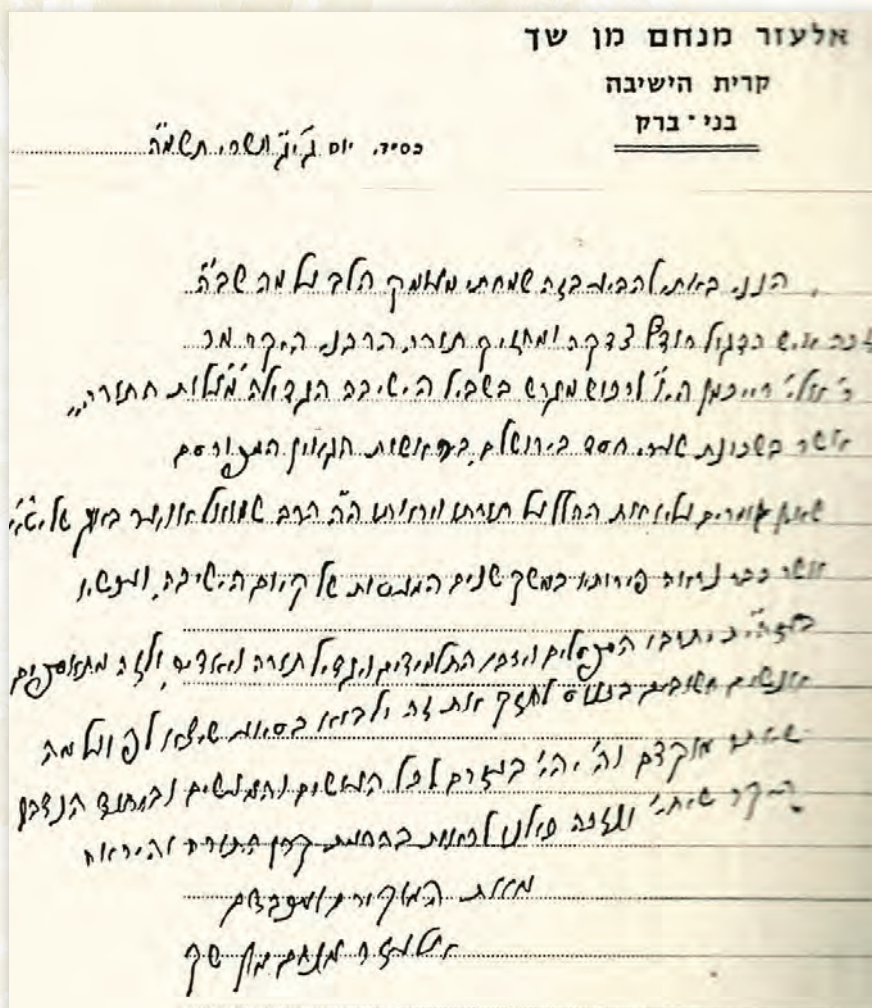 אלעזר מנחם מן שך
קרית הישיבה
בני־ברק
בסיד. יום ג' י"ג תשרי תשמ"ה
הנני באתי להביע בזה שמחתי מעומק הלב על מה שב"ה
זכה איש כדגיל רודף צדקה ומחזיק תורה הרבני היקר מר
ר' אולי' רייכמן הי"ו לרכוש מגרש בשביל הישיבה הגדולה "מעלות התורה"
אשר בשכונת שערי חסד בירושלים, בראשות הגאון המפורסם
שאנן עומדים תורתו ויראתו ה"ה הרב שמואל אויערבאך שליט"א
אשר כבר נראה פירותיו במשך שנים המעטות של קיום הישיבה, ועכשיו
בעזה"י יתרבו הפעלים וירבו התלמידים ויגדיל תורה ויאדיר, ולזה מתאספים
אנשים חשובים בכנוס לחזק את זה
מוקדם וה' יהי' בעזרם לכל העושים והמעשים ובמיוחד הנדבן
היקר שיחי' ונזכה כולנו לראות בהרמת קרן התורה והיראה
מאת המוקירם ומכבדם
אלעזר מנחם מן שך